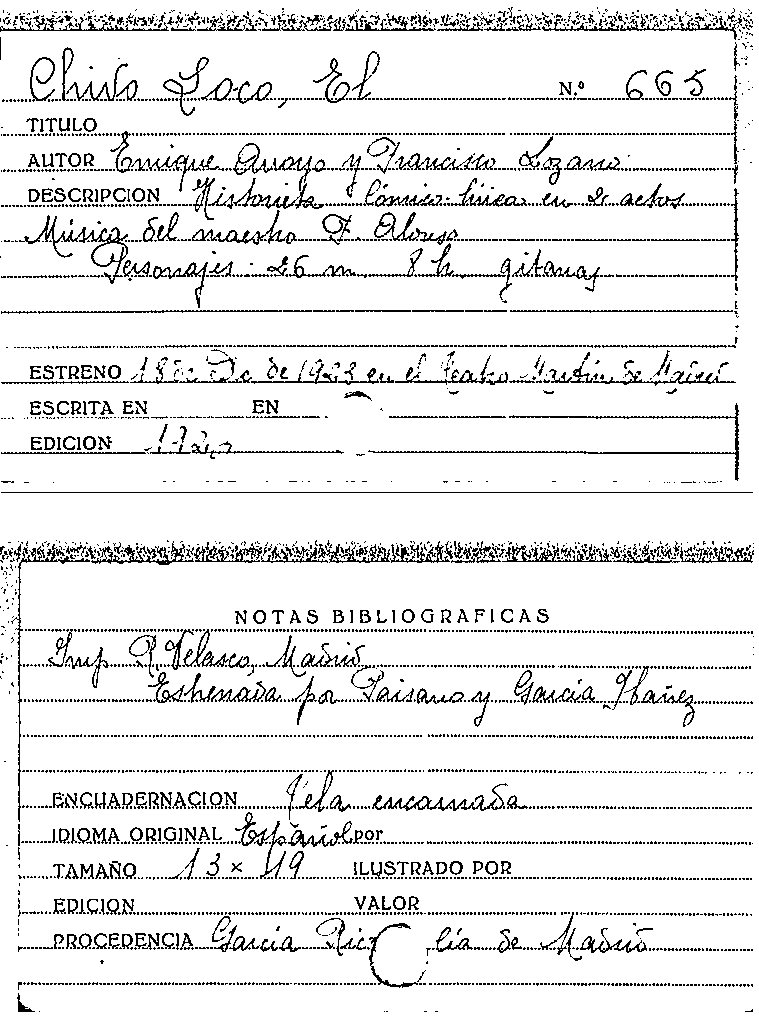 Chivo Loco, El N.º 665
TITULO
AUTOR Enrique Arroyo y Francisco Lozano
DESCRIPCION Historieta Cómico-lírica en 2 actos
Música del maestro F. Alonso
Personajes - 26 m 8 h gitanas
ESTRENO 18 de Dic de 1923 en el Teatro Martín de Madrid
ESCRITA EN EN
EDICION
NOTAS BIBLIOGRAFICAS
Imp R. Velasco, Madrid
Estrenada por Paisano y García Ibañez
ENCUADERNACION Tela encarnada
IDIOMA ORIGINAL Español por
TAMAÑO 13 x 19 ILUSTRADO POR
EDICION VALOR
PROCEDENCIA García Rico lía de Madrid